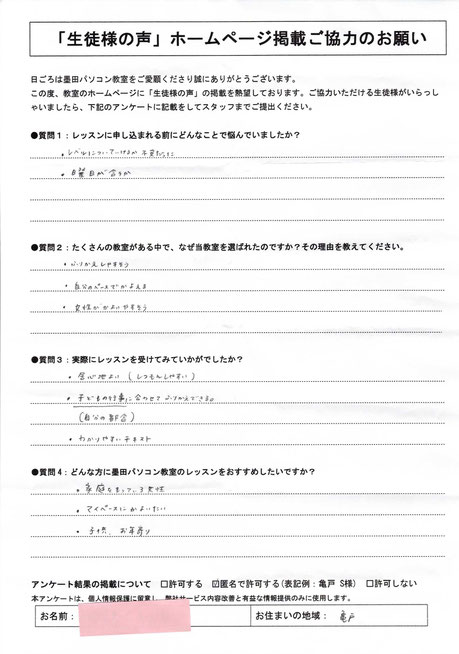 「生徒様の声」ホームページ掲載ご協力のお願い
日ごろは墨田パソコン教室をご愛顧くださり誠にありがとうございます。
この度、教室のホームページに「生徒様の声」の掲載を熱望しております。ご協力いただける生徒様がいらっし
ゃいましたら、下記のアンケートに記載をしてスタッフまでご提出ください。
●質問1：レッスンに申し込まれる前にどんなことで悩んでいましたか？
・レベルについていけるか 不安だった
・曜日が合うか
●質問2：たくさんの教室がある中で、なぜ当教室を選ばれたのですか？その理由を教えてください。
・ふりかえしやすそう
・自分のペースでかよえる
・女性がかよいやすそう
●質問3：実際にレッスンを受けてみていかがでしたか？
・居心地よい (しつもんしやすい)
・子どもの行事に合わせてふりかえできる。
(自分の都合)
・わかりやすいテキスト
●質問4：どんな方に墨田パソコン教室のレッスンをおすすめしたいですか？
・家庭をもっている女性
・マイペースにかよいたい
・子供、お年寄り
アンケート結果の掲載について □許可する ☑匿名で許可する(表記例：亀戸 S様) □許可しない
本アンケートは、個人情報保護に留意し、弊社サービス内容改善と有益な情報提供のみに使用します。
お名前： お住まいの地域： 亀戸